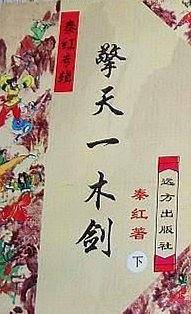 秦红专辑
擎天一木剑
秦红著
下
远方出版社